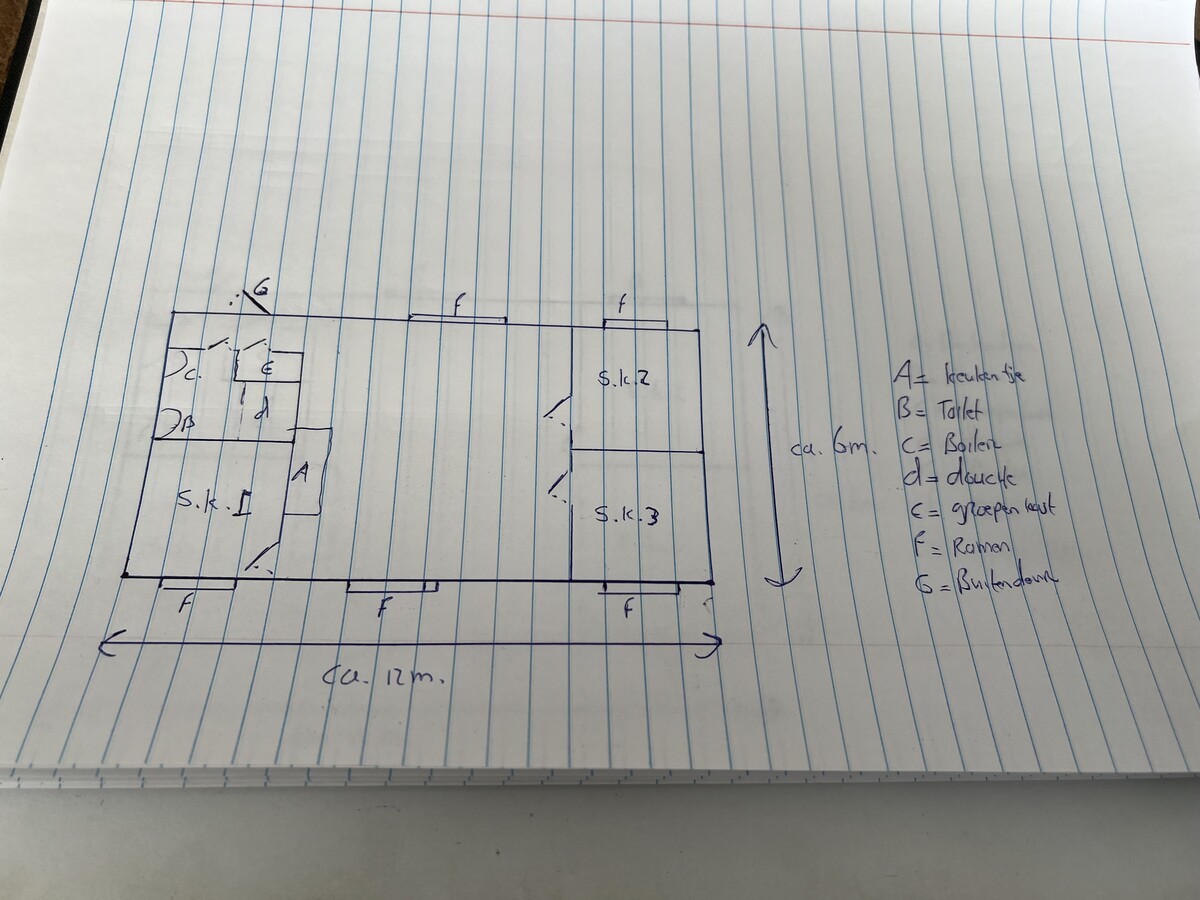 G
F
F
C.
E
d
B
A
S.K.1
S.K.2
S.K.3
F
F
F
ca. 6m.
ca. 12m.
A = keukentje
B = Toilet
C = Boiler
d = douche
E = groepenkast
F = Ramen
G = Buitendeur